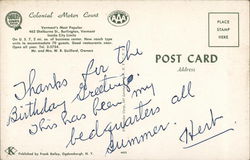 Colonial Motor Court
AAA
Vermont's Most Popular
462 Shelburne St., Burlington, Vermont
Inside City Limits
On U. S. 7, 2 mi. so. of business center. New ranch type
units to accommodate 70 guests. Good restaurants near.
Open all year. Tel. 2-5754
Mr. and Mrs. W. R. Guilford, Owners
PLACE
STAMP
HERE
POST CARD
Address
Thanks for the
Birthday Greetings.
This has been my
hedquarters all
Summer. Herb.
K. V.
Published by Frank Bailey, Ogdensburgh, N. Y.